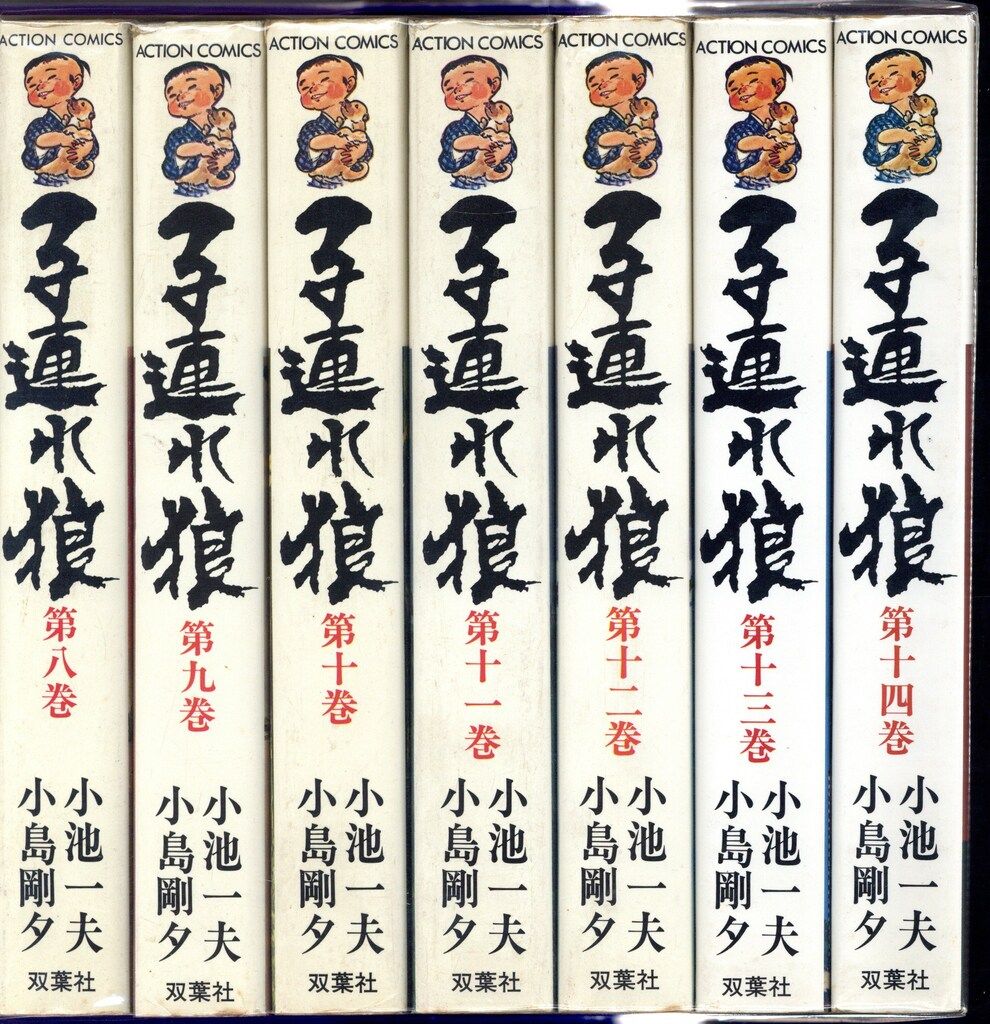 ACTION COMICS
子連れ狼
第八巻
小池一夫
小島剛夕
双葉社
ACTION COMICS
子連れ狼
第九巻
小池一夫
小島剛夕
双葉社
ACTION COMICS
子連れ狼
第十巻
小池一夫
小島剛夕
双葉社
ACTION COMICS
子連れ狼
第十一巻
小池一夫
小島剛夕
双葉社
ACTION COMICS
子連れ狼
第十二巻
小池一夫
小島剛夕
双葉社
ACTION COMICS
子連れ狼
第十三巻
小池一夫
小島剛夕
双葉社
ACTION COMICS
子連れ狼
第十四巻
小池一夫
小島剛夕
双葉社